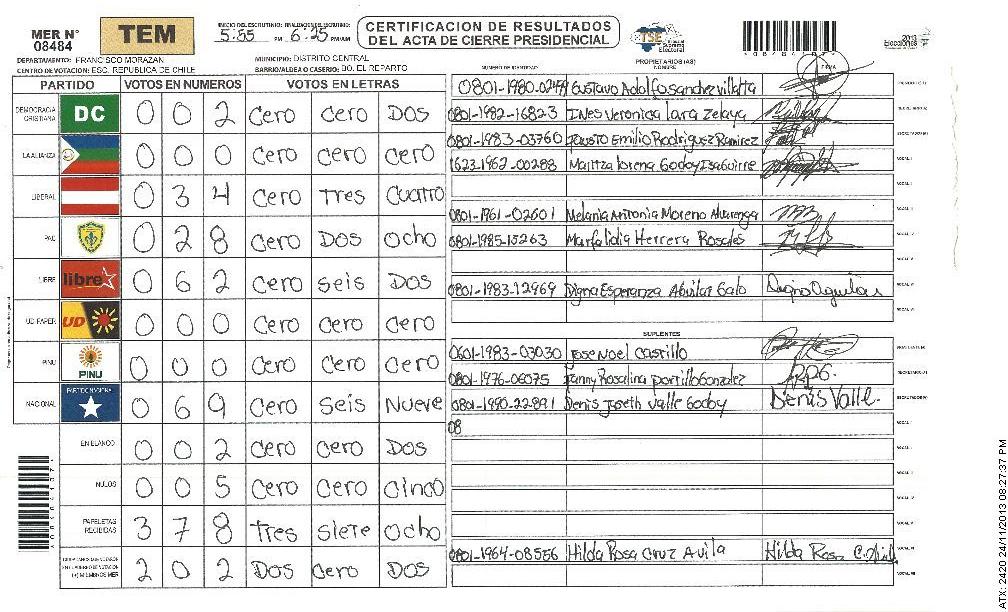 MER N° 08484
TEM
INICIO DEL ESCRUTINIO: 5:55 PM FINALIZACION DEL ESCRUTINIO: 6:25 PM/AM
CERTIFICACION DE RESULTADOS
DEL ACTA DE CIERRE PRESIDENCIAL
TSE Tribunal Supremo Electoral
2013 Elecciones
DEPARTAMENTO: FRANCISCO MORAZAN
MUNICIPIO: DISTRITO CENTRAL
CENTRO DE VOTACION: ESC. REPUBLICA DE CHILE
BARRIO/ALDEA O CASERIO: BO. EL REPARTO
PARTIDO VOTOS EN NUMEROS VOTOS EN LETRAS
DEMOCRACIA CRISTIANA DC 0 0 2 Cero Cero Dos
LA ALIANZA 0 0 0 Cero Cero Cero
LIBERAL 0 3 4 Cero Tres Cuatro
PAC 0 2 8 Cero Dos Ocho
LIBRE libre 0 6 2 Cero Seis Dos
UD-FAPER UD 0 0 0 Cero Cero Cero
PINU PINU 0 0 0 Cero Cero Cero
NACIONAL PARTIDO NACIONAL 0 6 9 Cero Seis Nueve
EN BLANCO 0 0 2 Cero Cero Dos
NULOS 0 0 5 Cero Cero Cinco
PAPELETAS RECIBIDAS 3 7 8 Tres Siete Ocho
(+) MIEMBROS MER 2 0 2 Dos Cero Dos
NUMERO DE IDENTIDAD PROPIETARIOS (AS) NOMBRE FIRMA
0801-1980-0249 Gustavo Adolfo sanchez villatta
0801-1982-16823 Ines Veronica Lara Zelaya
0801-1983-03760 Fausto Emilio Rodriguez Ramirez
1623-1962-00288 Maritza lorena Godoy Isaguirre
0801-1961-02601 Melania Antonia Moreno Alvarenga
0801-1985-15263 Marfa lidia Herrera Rosales
0801-1983-12969 Digna Esperanza Aguilar Galo
SUPLENTES
0601-1983-03030 Jose Noel Castillo
0801-1976-06075 Fanny Rosalina Portillo Gonzalez
0801-1990-22891 Denis Joseth Valle Godoy Denis Valle.
08
0801-1964-08556 Hilda Rosa Cruz Avila Hilda Rosa C.
ATX: 2420 24/11/2013 08:27:37 PM